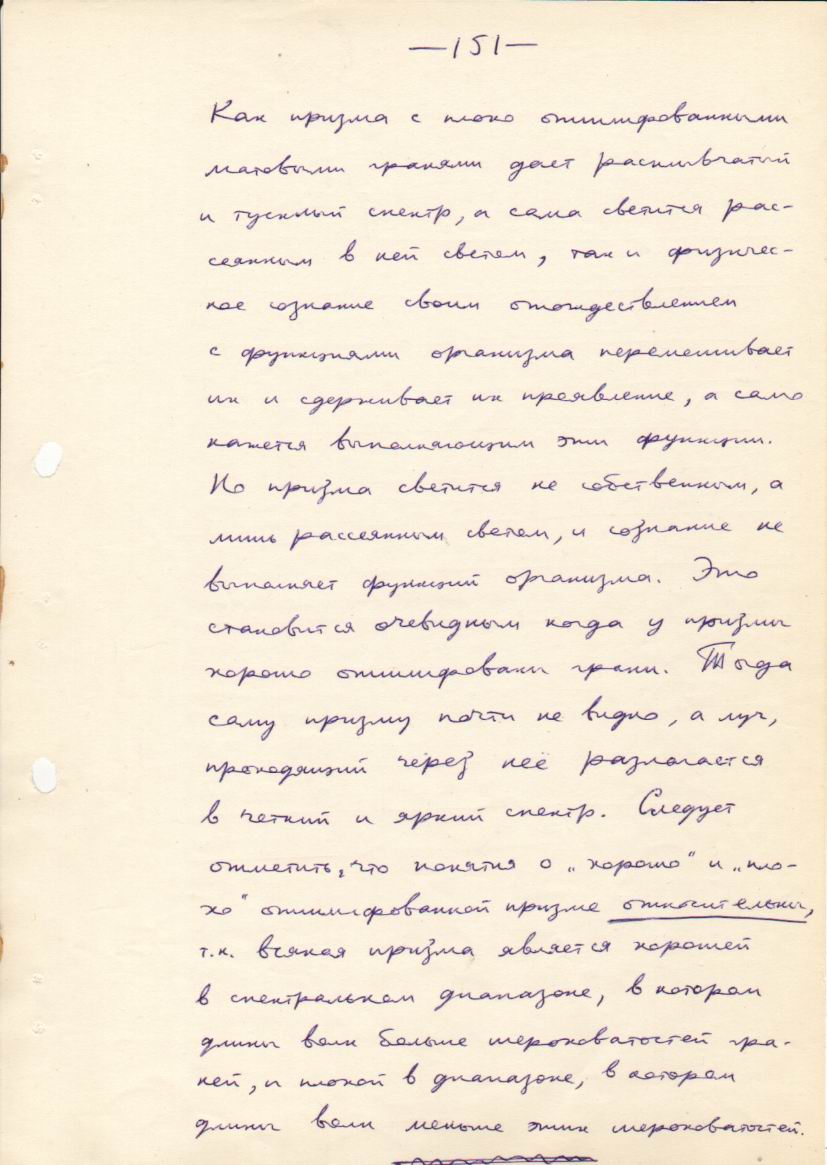 —151—
Как призма с плохо отшлифованными
матовыми гранями дает расплывчатый
и тусклый спектр, а сама светится рас-
сеянным в ней светом, так и физичес-
кое сознание своим отождествлением
с функциями организма перемешивает
их и сдерживает их проявление, а само
кажется выполняющим эти функции.
Но призма светится не собственным, а
лишь рассеянным светом, и сознание не
выполняет функций организма. Это
становится очевидным когда у призмы
хорошо отшлифованы грани. Тогда
саму призму почти не видно, а луч,
проходящий через неё разлагается
в четкий и яркий спектр. Следует
отметить, что понятия о „хорошо" и „пло-
хо" отшлифованной призме относительны,
т.к. всякая призма является хорошей
в спектральном диапазоне, в котором
длины волн больше шероховатостей гра-
ней, и плохой в диапазоне, в котором
длины волн меньше этих шероховатостей.